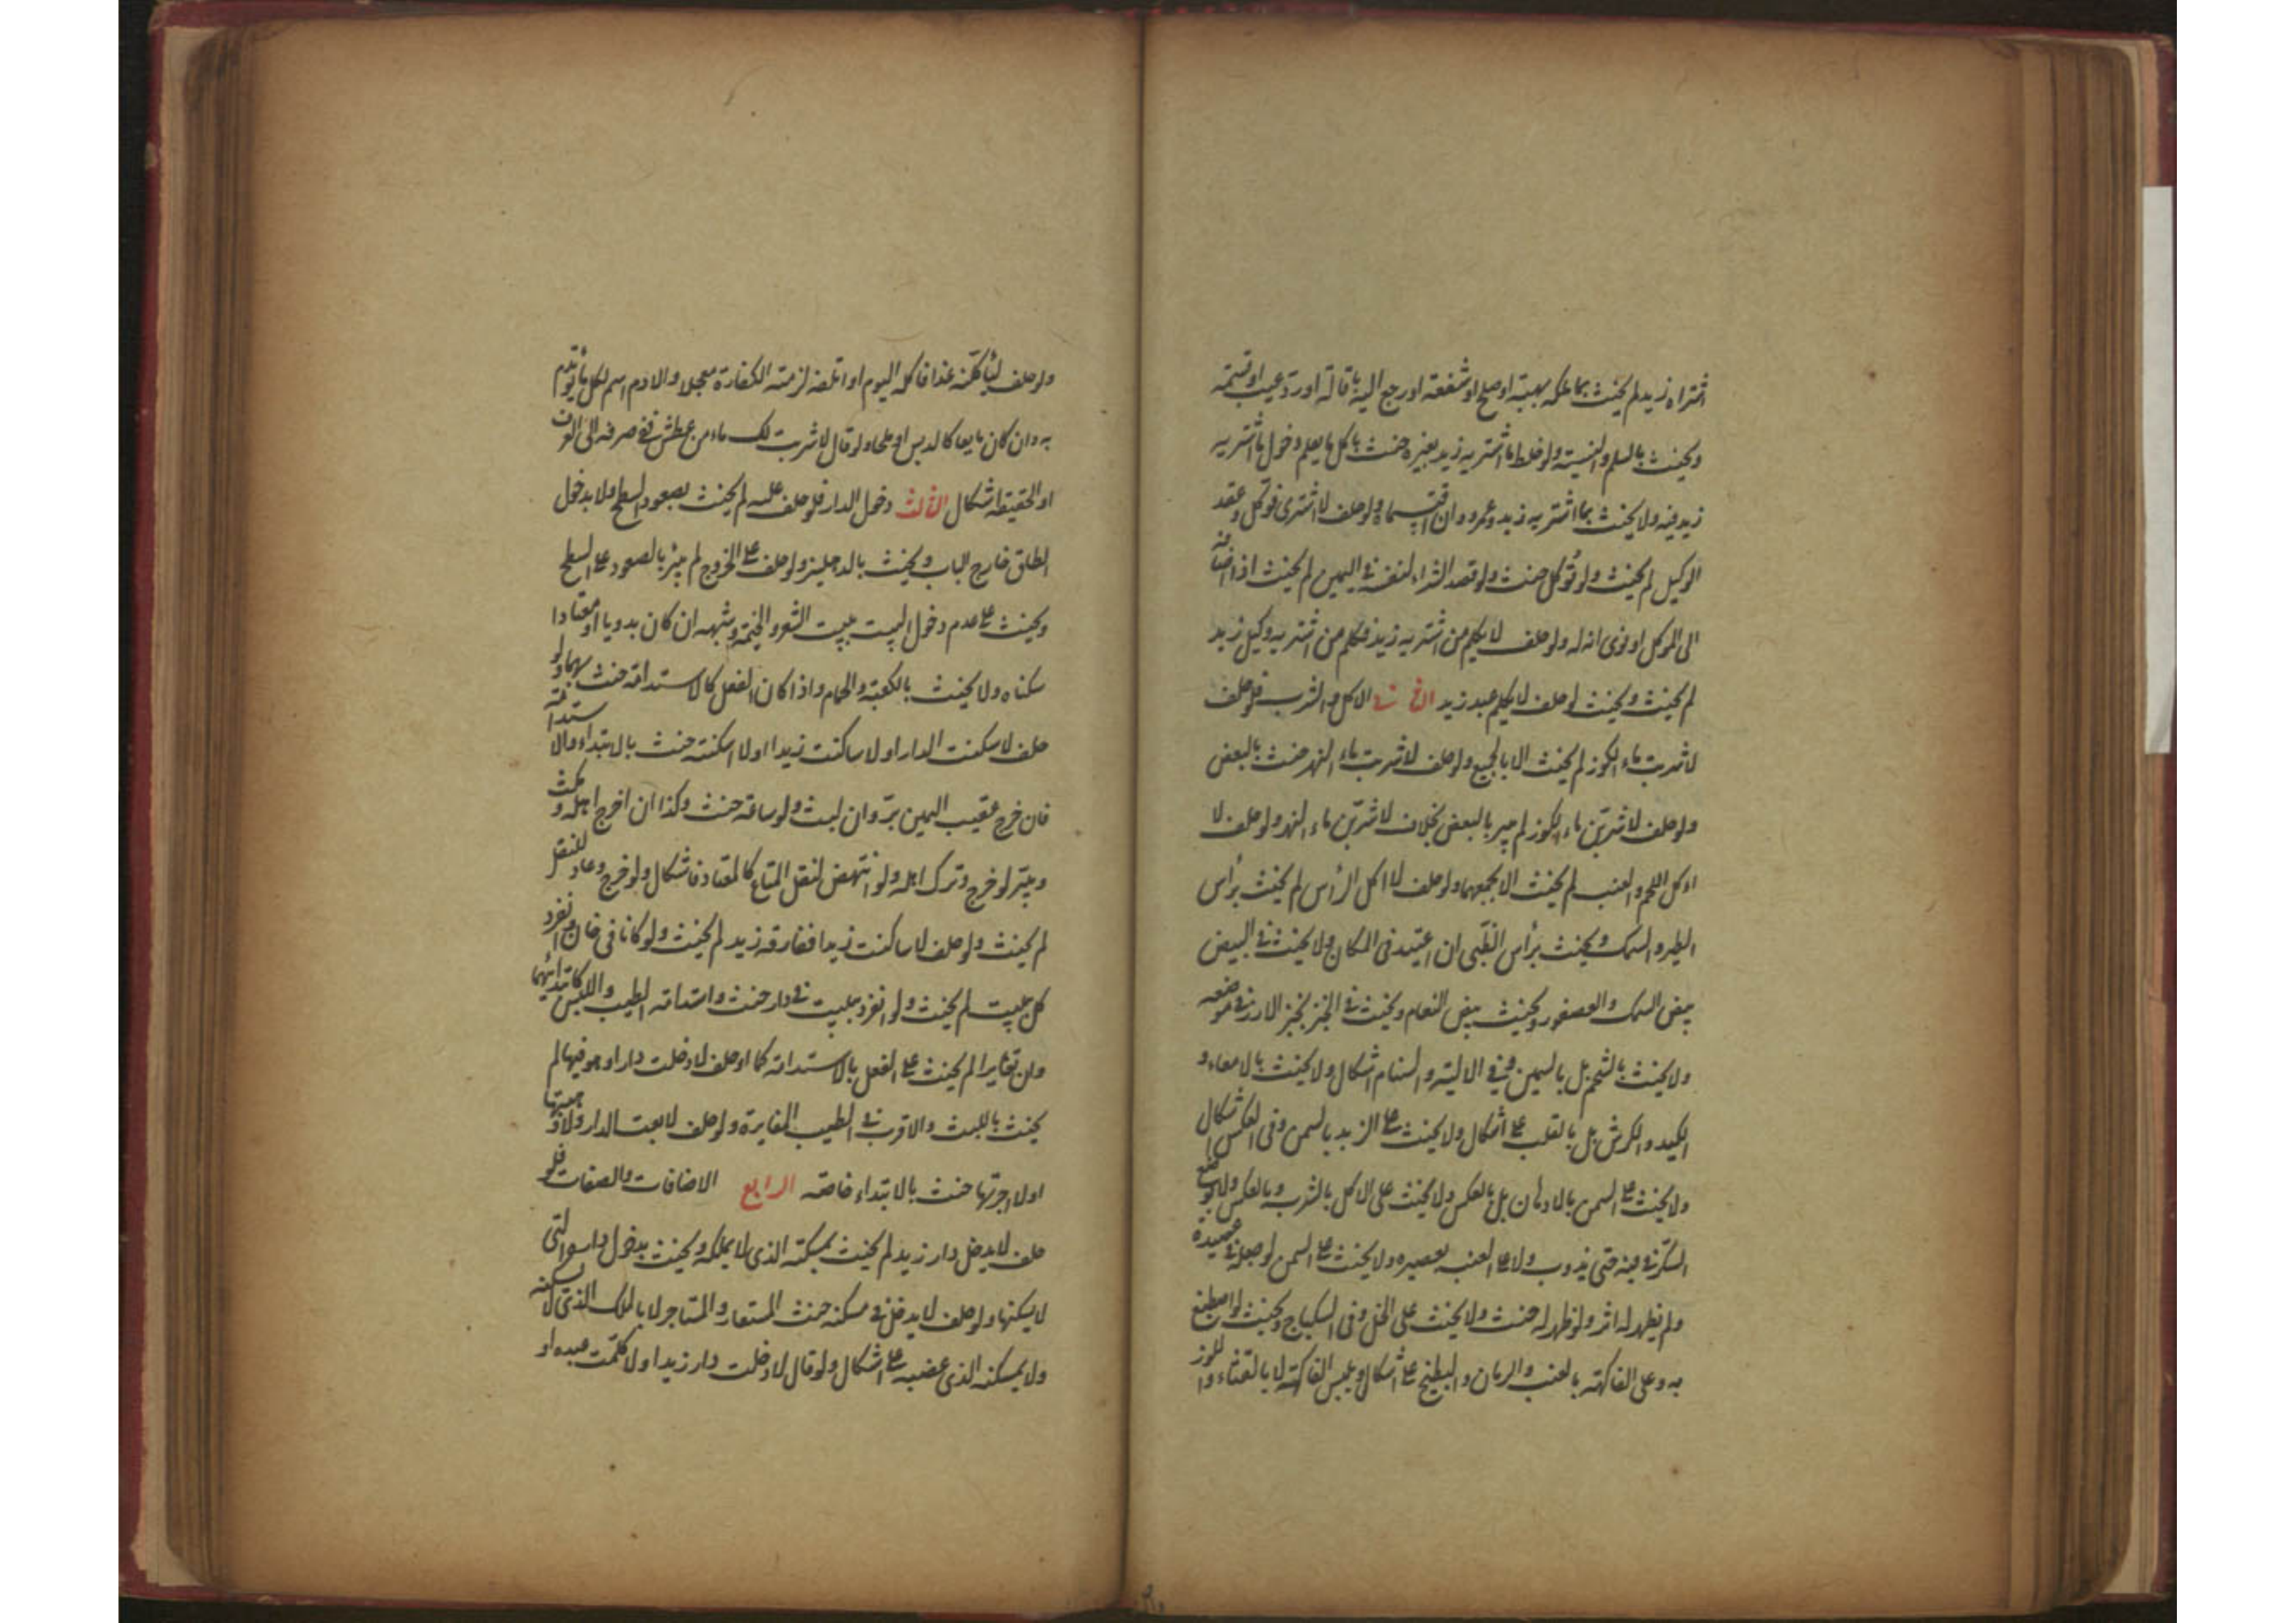 اشتراه زيد لم يحنث بما ملكه بهبة او صلح او شفعة او رجع اليه باقالة او رد عيب او قسمة
ويحنث بالسلم والنسيئة ولو خلط ما اشتريه زيد بغيره حنث باكل ما يعلم دخول ما اشتريه
زيد فيه ولا يحنث بما اشتريه زيد وعمرو وان اقتسماه ولو حلف لا اشتري فوكل وعقد
الوكيل لم يحنث ولو توكل حنث ولو قصد الشراء لنفسه في اليمين لم يحنث اذا اضافه
الى الموكل او نوى انه له ولو حلف لا يكلم من اشتريه زيد فكلم من اشتريه وكيل زيد
لم يحنث ويحنث لو حلف لا يكلم عبد زيد الثاني في الاكل والشرب فلو حلف
لا شربت ماء الكوز لم يحنث الا بالجميع ولو حلف لا شربت ماء النهر حنث بالبعض
ولو حلف لاشربن ماء الكوز لم يبر بالبعض بخلاف لاشربن ماء النهر ولو حلف لا
اءكل اللحم والعنب لم يحنث الا بجمعهما ولو حلف لا اكل الرأس لم يحنث برأس
الطير والسمك ويحنث برأس الظبي ان اعتيد في المكان ولا يحنث في البيض
ببيض السمك والعصفور ويحنث ببيض النعام ويحنث في الخبز بخبز الارز في موضعه
ولا يحنث بالشحم بل بالسمين وفي الالية والسنام اشكال ولا يحنث بالامعاء و
الكبد والكرش بل بالقلب على اشكال ولا يحنث على الزبد بالسمن وفي العكس اشكال
ولا يحنث على السمن بالادهان بل بالعكس ولا يحنث على الاكل بالشرب وبالعكس ولا بوضع
السكر في فيه حتى يذوب ولا على العنب بعصيره ولا يحنث على السمن لو جعله في عصيدة
ولم يظهر له اثر ولو ظهر له حنث ولا يحنث على الخل وفي السكباج ويحنث لو اصطبغ
به وعلى الفاكهة بالعنب والرمان والبطيخ على اشكال ويابس الفاكهة لا بالقثاء واللوز
ولو حلف ليأكلنه غدا فاكله اليوم او اتلفه لزمته الكفارة معجلا والادم اسم لكل ما يؤتدم
به وان كان مايعا كالدبس او ملحا ولو قال لا شربت لك ماء من عطش ففي صرفه الى العرف
او الحقيقة اشكال الثالث دخول الدار فلو حلف عليه لم يحنث بصعود السطح ولا بدخول
الطاق خارج الباب ويحنث بالدهليز ولو حلف على الخروج لم يبر بالصعود على السطح
ويحنث على عدم دخول البيت ببيت الشعر والخيمة وشبهه ان كان بدويا او معتادا
سكناه ولا يحنث بالكعبة والحمام واذا كان الفعل كالاستدامة حنث بهما ولو
حلف لا سكنت الدار او لا ساكنت زيدا او لا اسكنته حنث بالابتداء والاستدامة
فان خرج عقيب اليمين بر وان لبث ولو ساعة حنث وكذا ان اخرج اهله ومكث
ويبر لو خرج وترك اهله ولو انتهض لنقل المتاع كالمعتاد فاشكال ولو خرج وعاد للنقل
لم يحنث ولو حلف لا ساكنت زيدا ففارقه زيد لم يحنث ولو كانا في خان وانفرد
كل ببيت لم يحنث ولو انفرد ببيت في دار حنث واستدامة الطيب واللبس كابتدائهما
وان تغايرا لم يحنث على الفعل بالاستدامة كما لو حلف لا دخلت دارا وهو فيها لم
يحنث باللبث والاقرب في الطيب المغايرة ولو حلف لا بعت الدار ولا وهبتها
او لا اجرتها حنث بالابتداء خاصة الرابع الاضافات والصفات فلو
حلف لا يدخل دار زيد لم يحنث بمسكنه الذي لا يملكه ويحنث بدخول داره التي
لا يسكنها ولو حلف لا يدخل في مسكنه حنث المستعار والمستاجر لا بالملك الذي لا يسكنه
ولا بمسكنه الذي غصبه على اشكال ولو قال لا دخلت دار زيد او لا كلمت عبده او